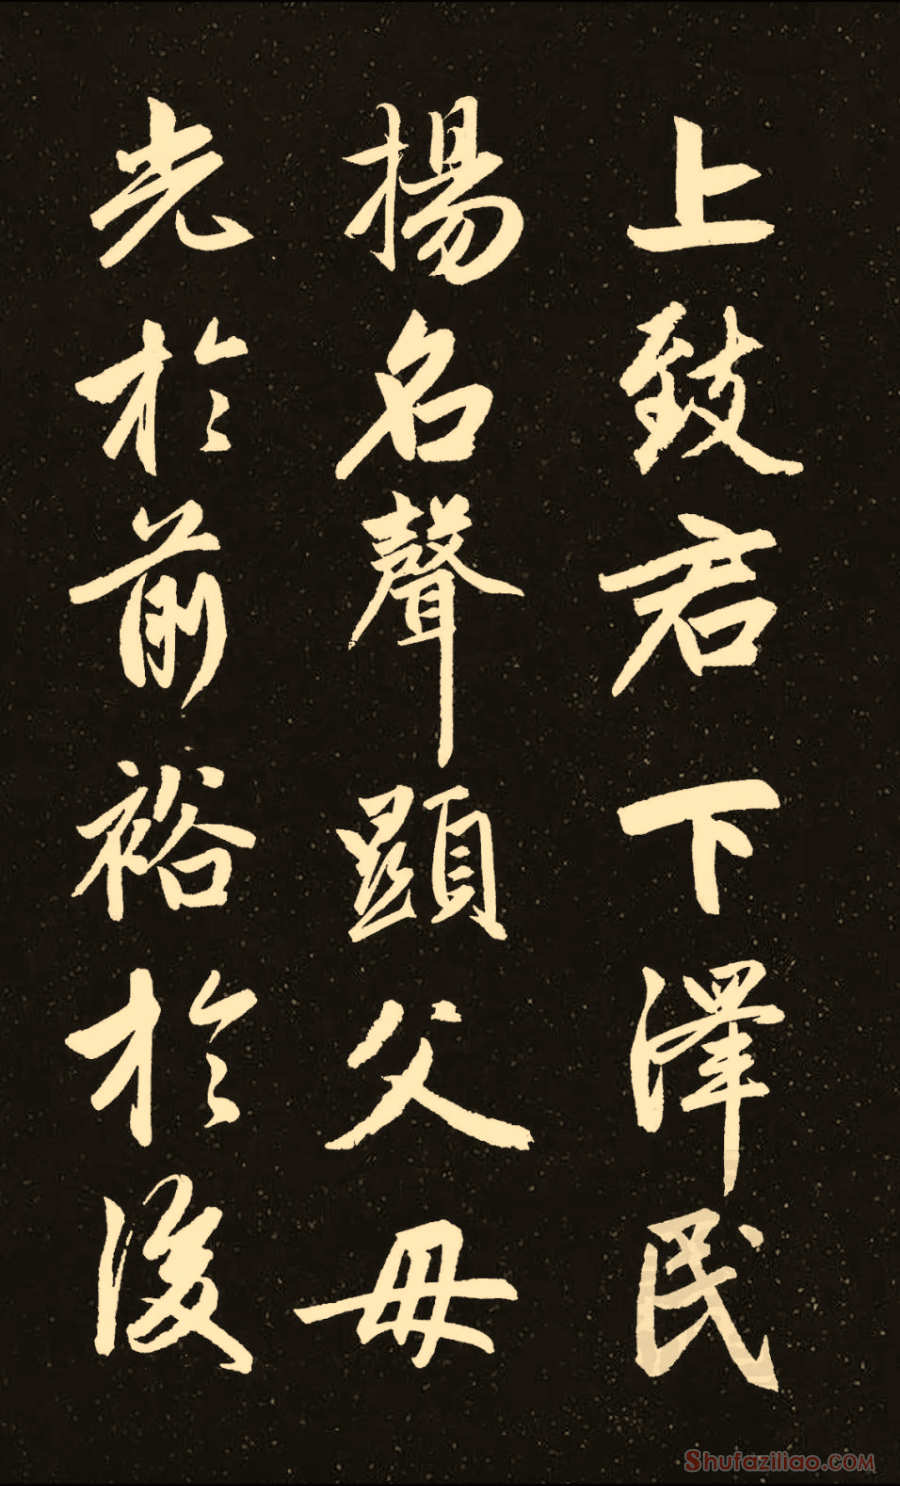 上致君下澤民
揚名聲顯父母
光於前裕於後
Shufaziliao.com